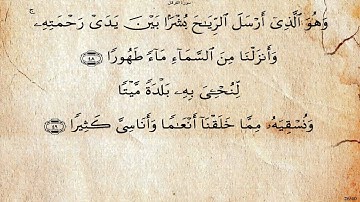 سورة الفرقان
وَهُوَ ٱلَّذِىٓ أَرْسَلَ ٱلرِّيَـٰحَ بُشْرًۢا بَيْنَ يَدَىْ رَحْمَتِهِۦ ۚ
وَأَنزَلْنَا مِنَ ٱلسَّمَآءِ مَآءً طَهُورًا ﴿٤٨﴾
لِّنُحْـِۧىَ بِهِۦ بَلْدَةً مَّيْتًا
وَنُسْقِيَهُۥ مِمَّا خَلَقْنَآ أَنْعَـٰمًا وَأَنَاسِىَّ كَثِيرًا ﴿٤٩﴾